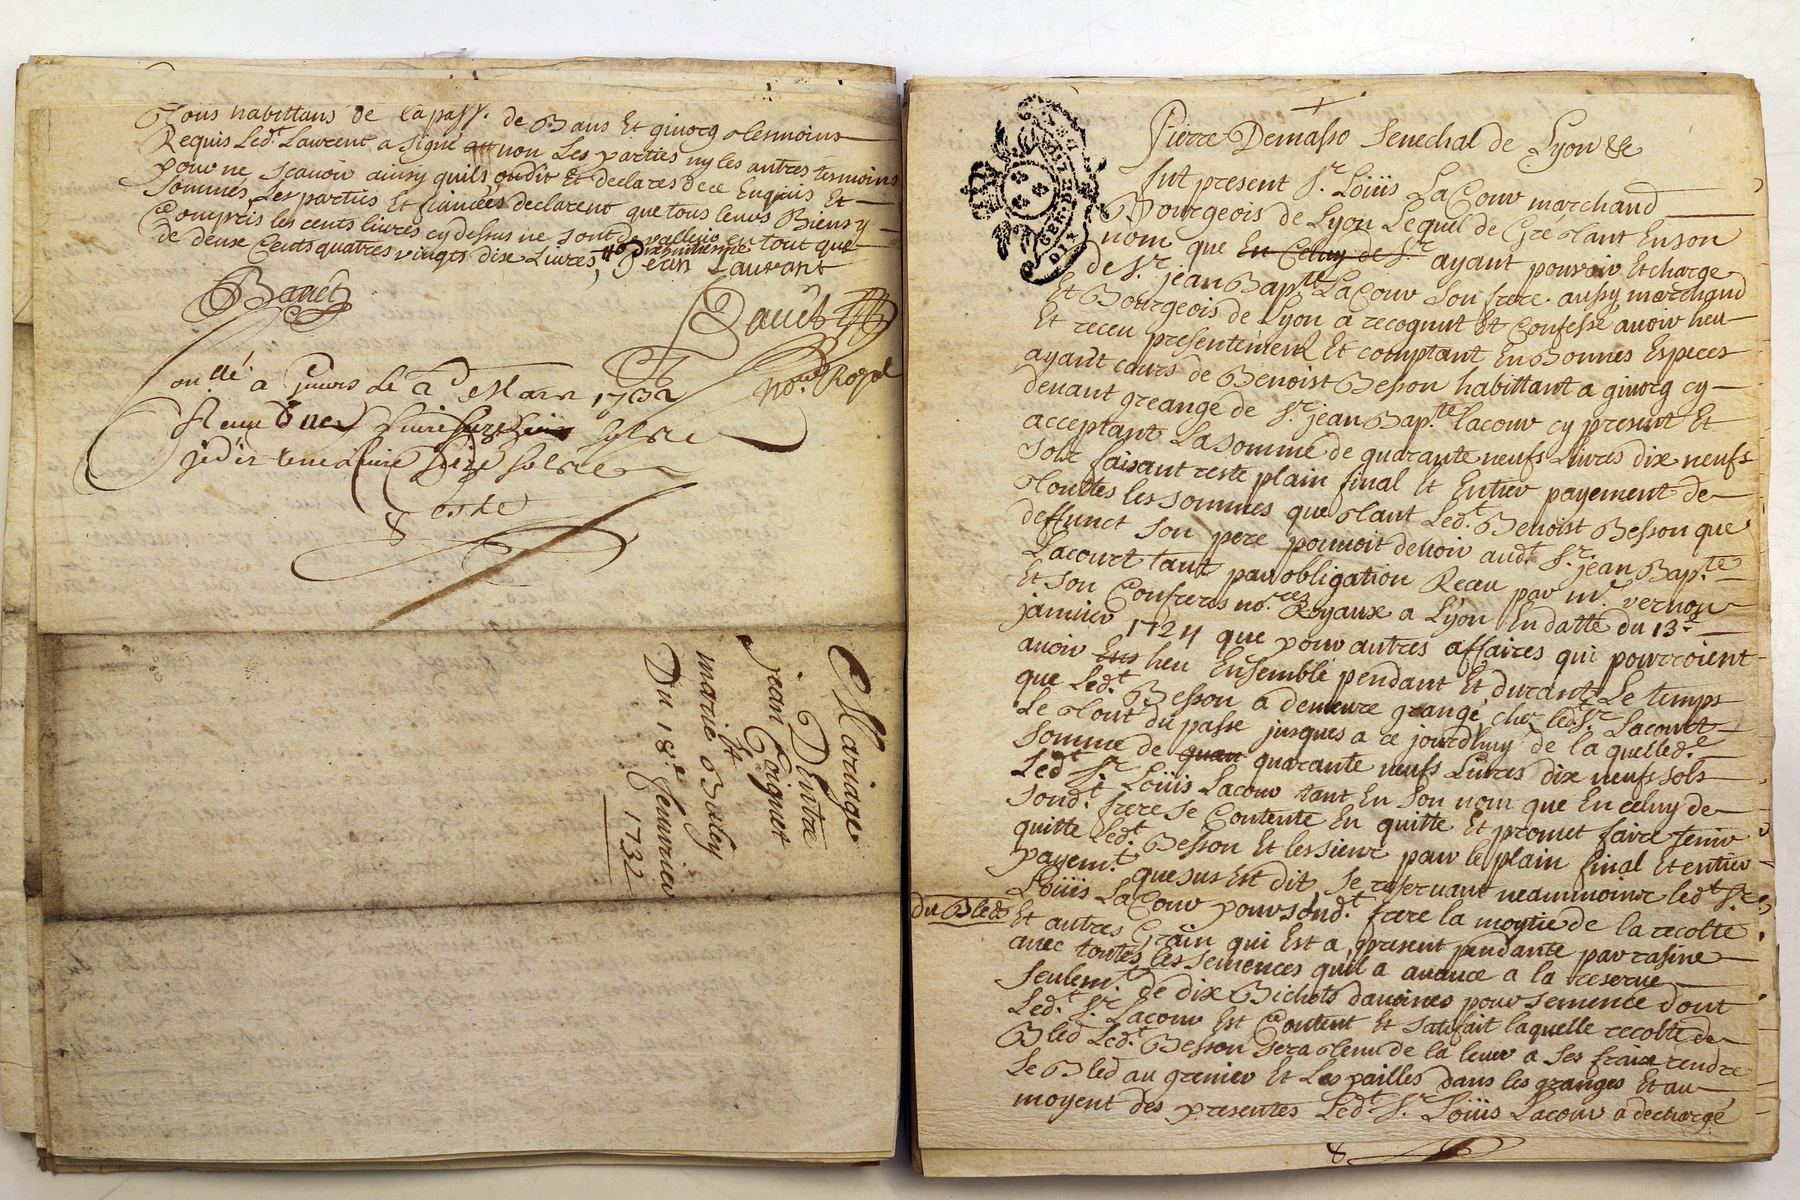 Tous habittans de la pass. de Bans Et givorg tesmoins
Requis Led.t Laurent a signé non Les parties ny les autres tesmoins
pour ne scavoir ainsy quils ont dit Et declares de ce Enquis Et
sommes Les parties Et fiancées declarent que tous leurs Biens y
Compris les cents livres cy dessus ne sont de valleur en tout que
de deux Cents quatres vingts dix Livres Jean Laurant
Bauet
Dauet
no.re Royal
a givors le 2.d Mars 1732
Reçu livre
Coste
Mariage
D'Entre
jean Coignet
Et
marie Bouly
Du 18.e Jeanvier
1732
Pierre Demasso Senechal de Lyon &c
fut present S.r Loüis LaCour marchand
Bourgeois de Lyon Lequel de Gré tant En son
nom que En Celuy de S.r ayant pouvoir Et charge
de S.r jean Bap.te LaCour son frere aussy marchand
Et Bourgeois de Lyon a recognut Et Confessé avoir heu
Et receu presentement Et comptant En Bonnes Especes
ayant cours de Benoist Besson habittant a givorg cy
devant greangé de S.r jean Bap.te lacour cy present Et
acceptant La somme de quarante neufs Livres dix neufs
sols faisant reste plain final Et Entier payement de
touttes les sommes que tant Led.t Benoist Besson que
deffunct son pere pouvoit devoir aud.t S.r jean Bap.te
Lacourt tant par obligation Receu par m.e vernon
Et son Confreres no.res Royaux a Lyon En datte du 13.e
janvier 1724 que pour autres affaires qui pourroient
avoir Ens heu Ensemble pendant Et durant Le temps
que Led.t Besson a demeure grangé chez led. S.r Lacourt
Le tout du passe jusques a ce jourdhuy de la quelle d.e
somme de quar quarante neufs Livres dix neufs sols
Led.t S.r Loüis Lacour tant En son nom que En celuy de
sond.t frere se Contente En quitte Et promet faire tenir
quitte Led.t Besson Et les siens par le plain final Et entier
payem.t que sus Est dit, se reservant neammoins led.t S.r
Loüis LaCour pour sond.t frere la moytié de la recolte
du Bled Et autres Grain qui Est a present pendante par rasine
avec toutes les semences quil a avance a la reserve
seulem.t de dix Bichets davoines pour semence dont
Led.t S.r Lacour Est Content Et satisfait laquelle recolte de
Bled Led.t Besson sera tenu de la lever a ses frais rendre
Le Bled au grenier Et Les pailles dans les granges Et au
moyent des presentes Led.t S.r Loüis Lacour a dechargé